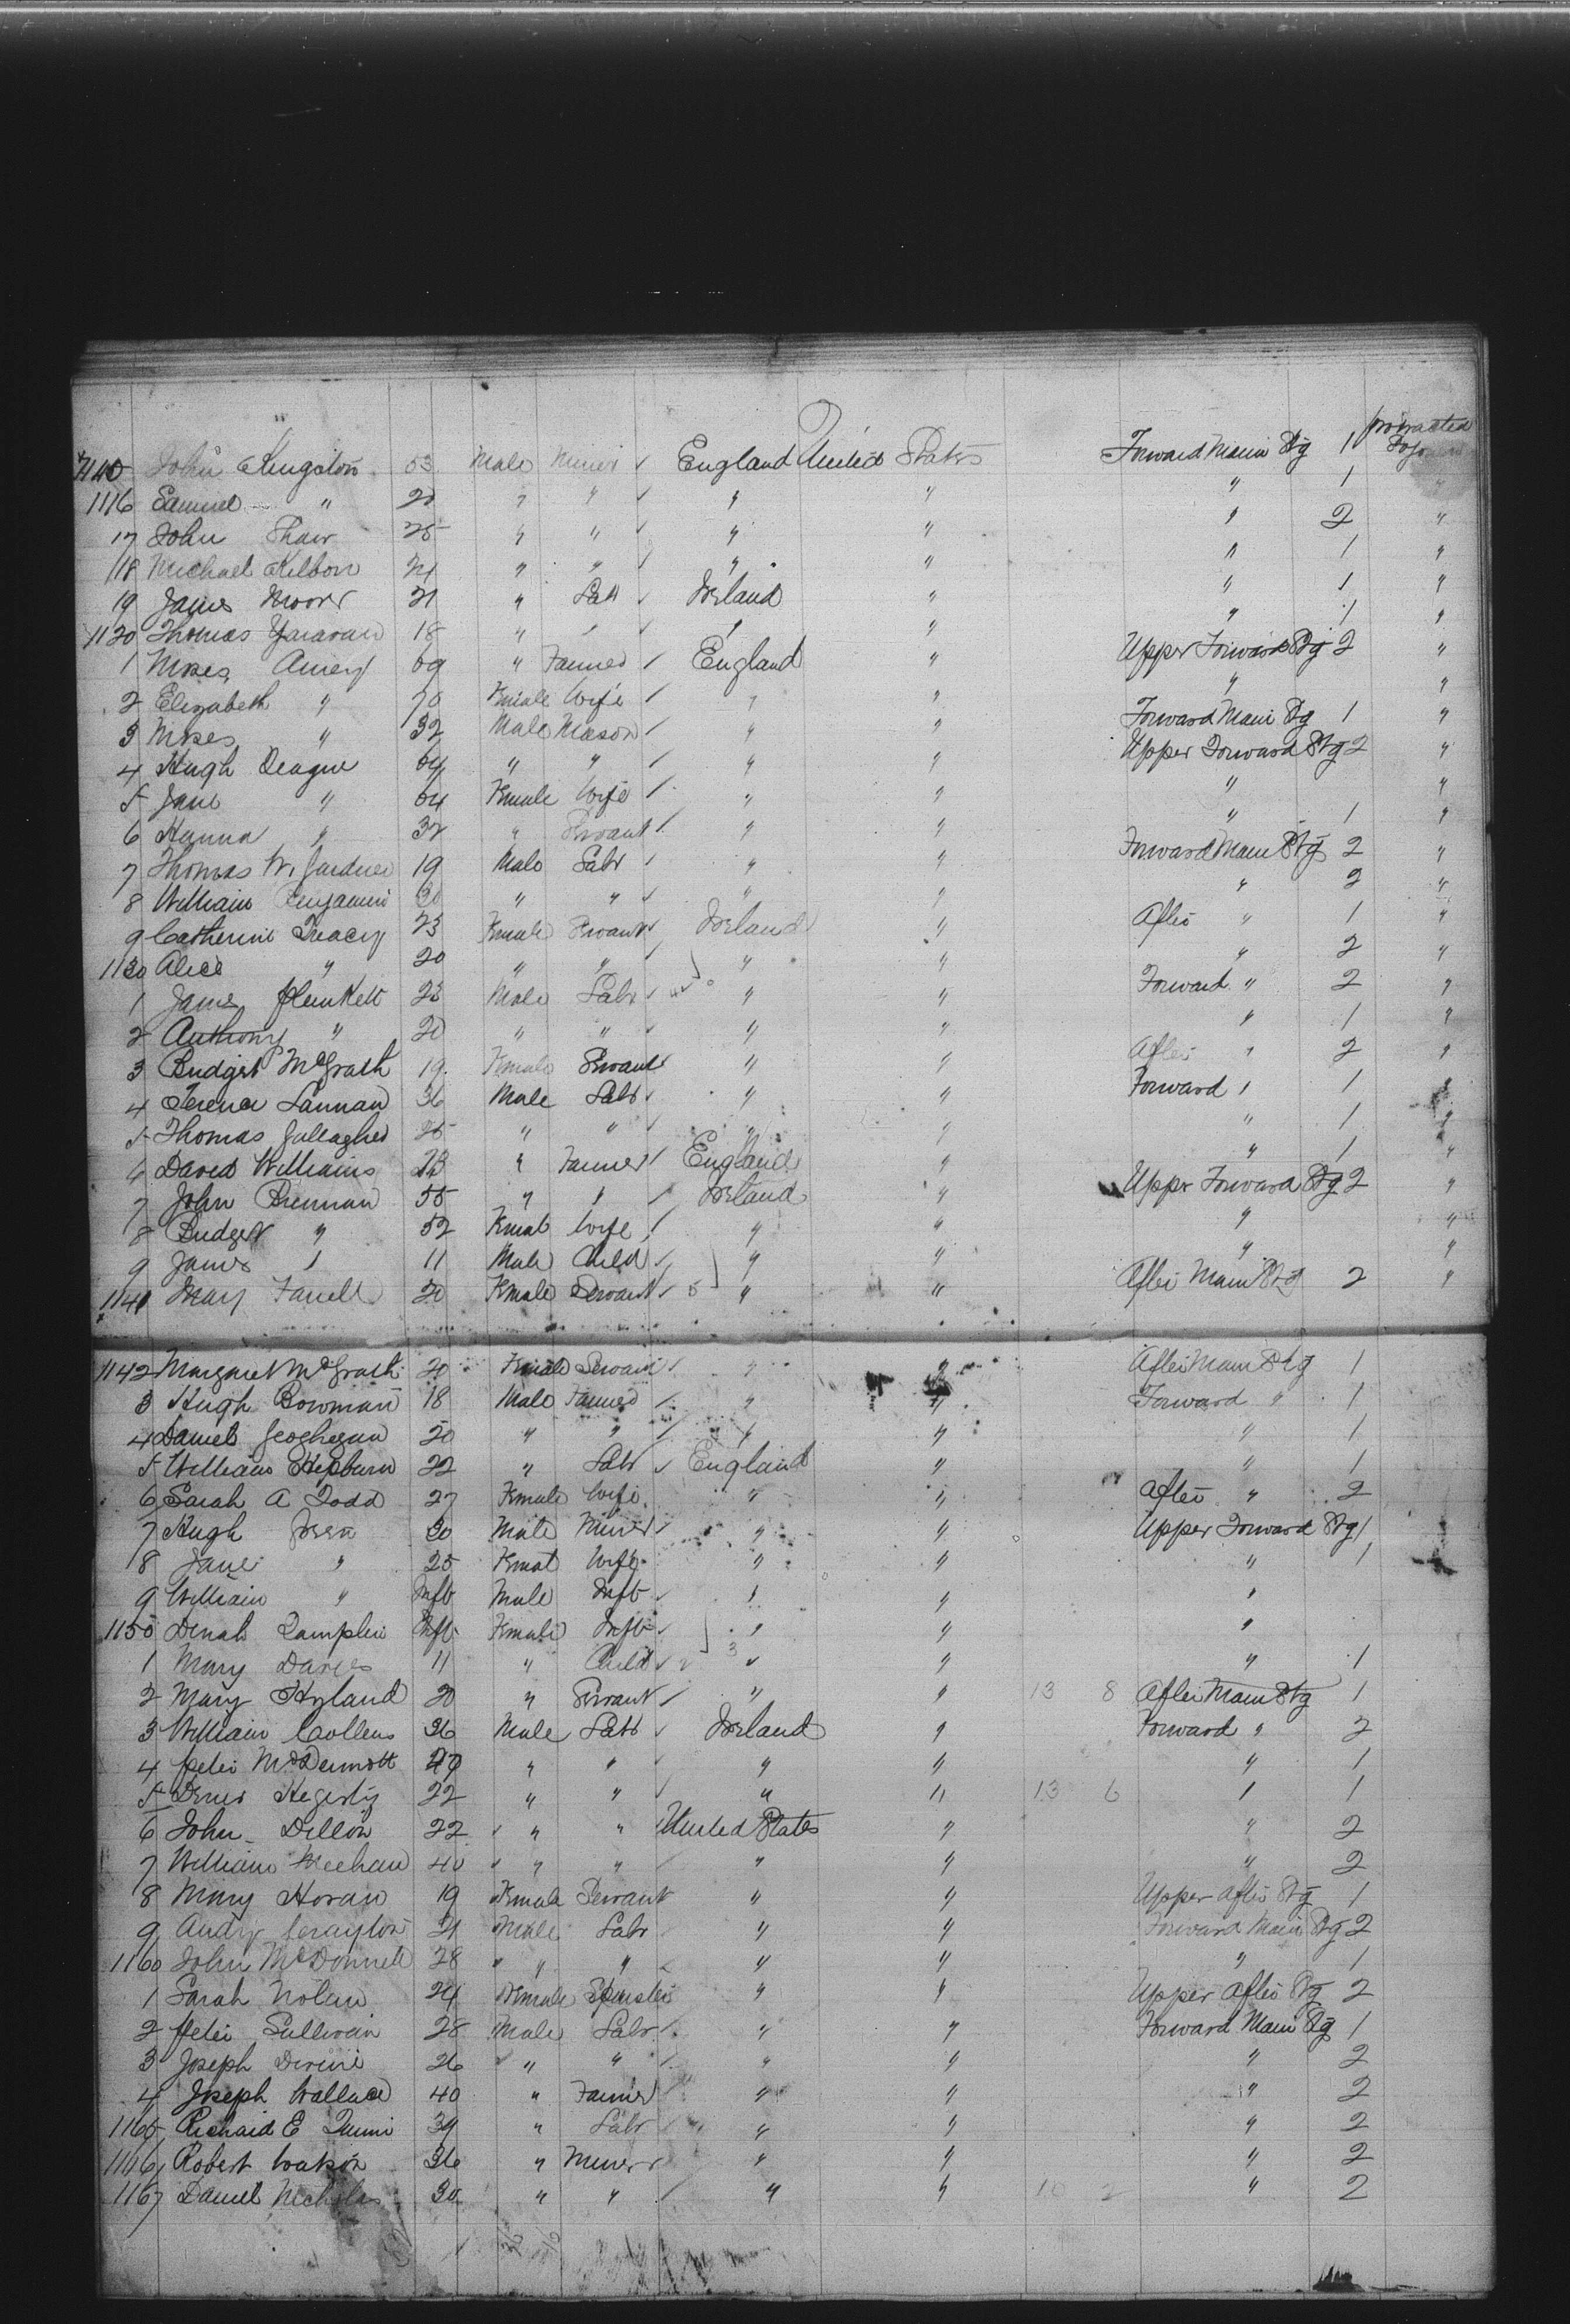 John Kingston 53 Male Miner ✓ England United States Forward Main Stg 1 protracted Sojourn
1116 Samuel " 20 " " ✓ " " " 1 "
17 John Shaw 25 " " ✓ " " " 2 "
118 Michael Kilbon 21 " " ✓ " " " 1 "
19 James Moore 21 " Labr ✓ Ireland " " 1 "
1120 Thomas 18 " " ✓ " " " 1 "
1 Moses Amery 69 " Farmer ✓ England " Upper Forward Stg 2 "
2 Elizabeth " 70 Female Wife ✓ " " " "
3 Moses " 32 Male Mason ✓ " " Forward Main Stg 1 "
4 Hugh Deague 64 " " ✓ " " Upper Forward Stg 2 "
5 Jane " 64 Female Wife ✓ " " " "
6 Hanna " 32 " Servant ✓ " " " 1 "
7 Thomas W. Gardner 19 Male Labr ✓ " " Forward Main Stg 2 "
8 William Benjamin 30 " " ✓ " " " 2 "
9 Catherine Treacy 23 Female Servant ✓ Ireland " After " 1 "
1130 Alice " 20 " " ✓ " " " 2 "
1 James Plunkett 23 Male Labr ✓ " " Forward " 2 "
2 Anthony " 20 " " ✓ " " " 1 "
3 Bridget McGrath 19 Female Servant ✓ " " After " 2 "
4 Terence Lannan 36 Male Labr ✓ " " Forward " 1 "
5 Thomas Gallagher 25 " " ✓ " " " 1 "
6 David Williams " Farmer ✓ England " " 1 "
7 John Brennan 55 " " ✓ Ireland " Upper Forward Stg 2 "
8 Bridget " 52 Female Wife ✓ " " " "
9 James " 11 Male Child ✓ " " " "
1141 Mary Farrell 20 Female Servant ✓ 5 " " After Main Stg 2 "
1142 Margaret McGrath 20 Female Servant ✓ " " After Main Stg 1
3 Hugh Bowman 18 Male Farmer ✓ " " Forward " 1
4 Daniel Geoghegan 20 " " ✓ " " " 1
5 William Hepburn 22 " Labr ✓ England " " 1
6 Sarah A Todd 27 Female Wife " " After " 2
7 Hugh Green 30 Male Miner ✓ " " Upper Forward Stg 1
8 Jane " 25 Female Wife " " " 1
9 William " Inft Male Inft ✓ " " "
1150 Dinah Lamplin Inft Female Inft ✓ " " "
1 Mary Davies 11 " Child ✓ 3 " " " 1
2 Mary Hyland 20 " Servant ✓ " " 13 8 After Main Stg 1
3 William Collens 36 Male Labr ✓ Ireland " Forward " 2
4 Peter McDermott " " ✓ " " " 1
5 Denis Hegerty 22 " " ✓ " " 13 6 " 1
6 John Dillon 22 " " United States " " 2
7 William Meehan 40 " " " " " 2
8 Mary Horan 19 Female Servant " " Upper After Stg 1
9 Andw Crayton 21 Male Labr " " Forward Main Stg 2
1160 John McDonnell 28 " " " " " 1
1 Sarah Nolan 24 Female Spinster " " Upper After Stg 2
2 Peter Sullivan 28 Male Labr ✓ " " Forward Main Stg 1
3 Joseph Devine 26 " " ✓ " " " 2
4 Joseph Wallace 40 " Farmer ✓ " " " 2
1165 Richard E Quinn 39 " Labr ✓ " " " 2
1166 Robert Watson 36 " Miner ✓ " " " 2
1167 Daniel Nicholas 30 " " ✓ " " 10 2 " 2